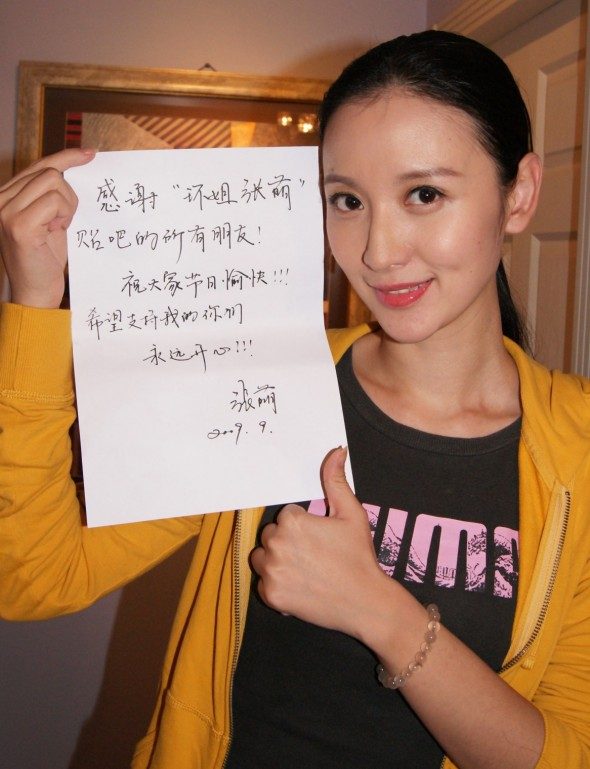 感谢“环姐张萌”
贴吧的所有朋友!
祝大家节日愉快!!!
希望支持我的你们
永远开心!!!
张萌
2009.9.
PUMA